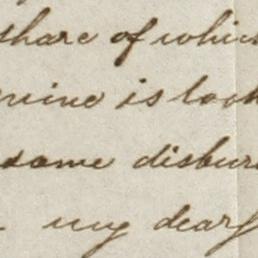 share of which
mine is look
same disburs
my dear